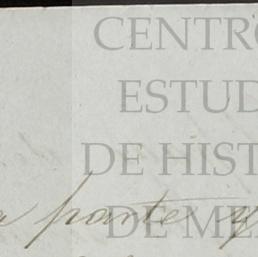 CENTRO
ESTUD
DE HIST
DE ME
a parte y